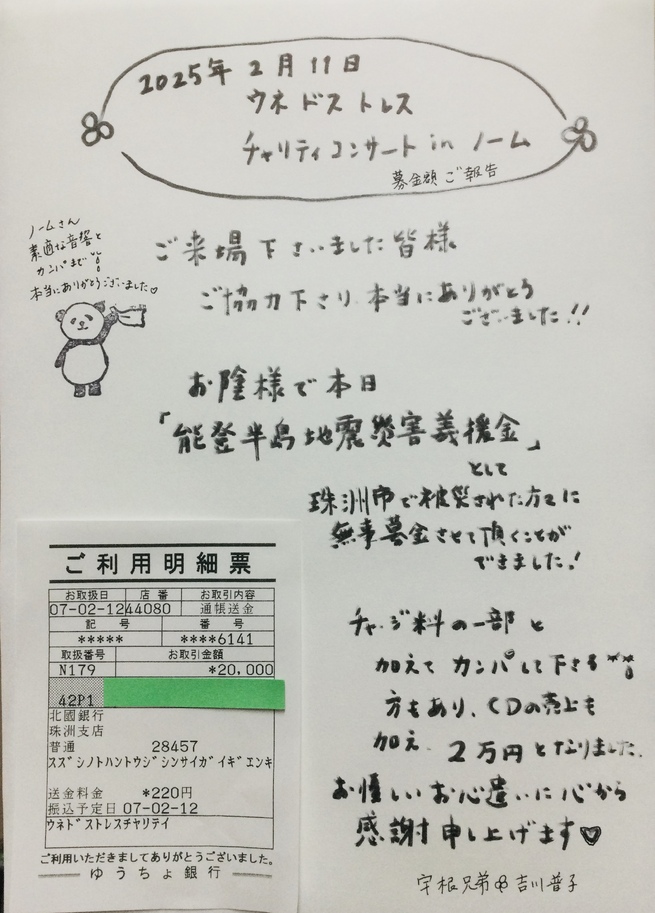 2025年2月11日
ウネドストレス
チャリティコンサート in ノーム
募金額ご報告
ノームさん
素適な音響と
カンパまで
本当にありがとうございました♡
ご来場下さいました皆様
ご協力下さり、本当にありがとう
ございました!!
お陰様で本日
「能登半島地震災害義援金」
として
珠洲市で被災された方々に
無事募金させて頂くことが
できました!
チャージ料の一部と
加えてカンパして下さる
方もあり、CDの売上も
加え、2万円となりました。
お優しいお心遣いに心から
感謝申し上げます♡
宇根兄弟 吉川普子
ご利用明細票
お取扱日 店番 お取引内容
07-02-12 44080 通帳送金
記号 番号
***** ****6141
取扱番号 お取引金額
N179 *20,000
42P1
北國銀行
珠洲支店
普通 28457
スズシノトハントウジシンサイガイギエンキ
送金料金 *220円
振込予定日 07-02-12
ウネドストレスチャリテイ
ご利用いただきましてありがとうございました。
ゆうちょ銀行